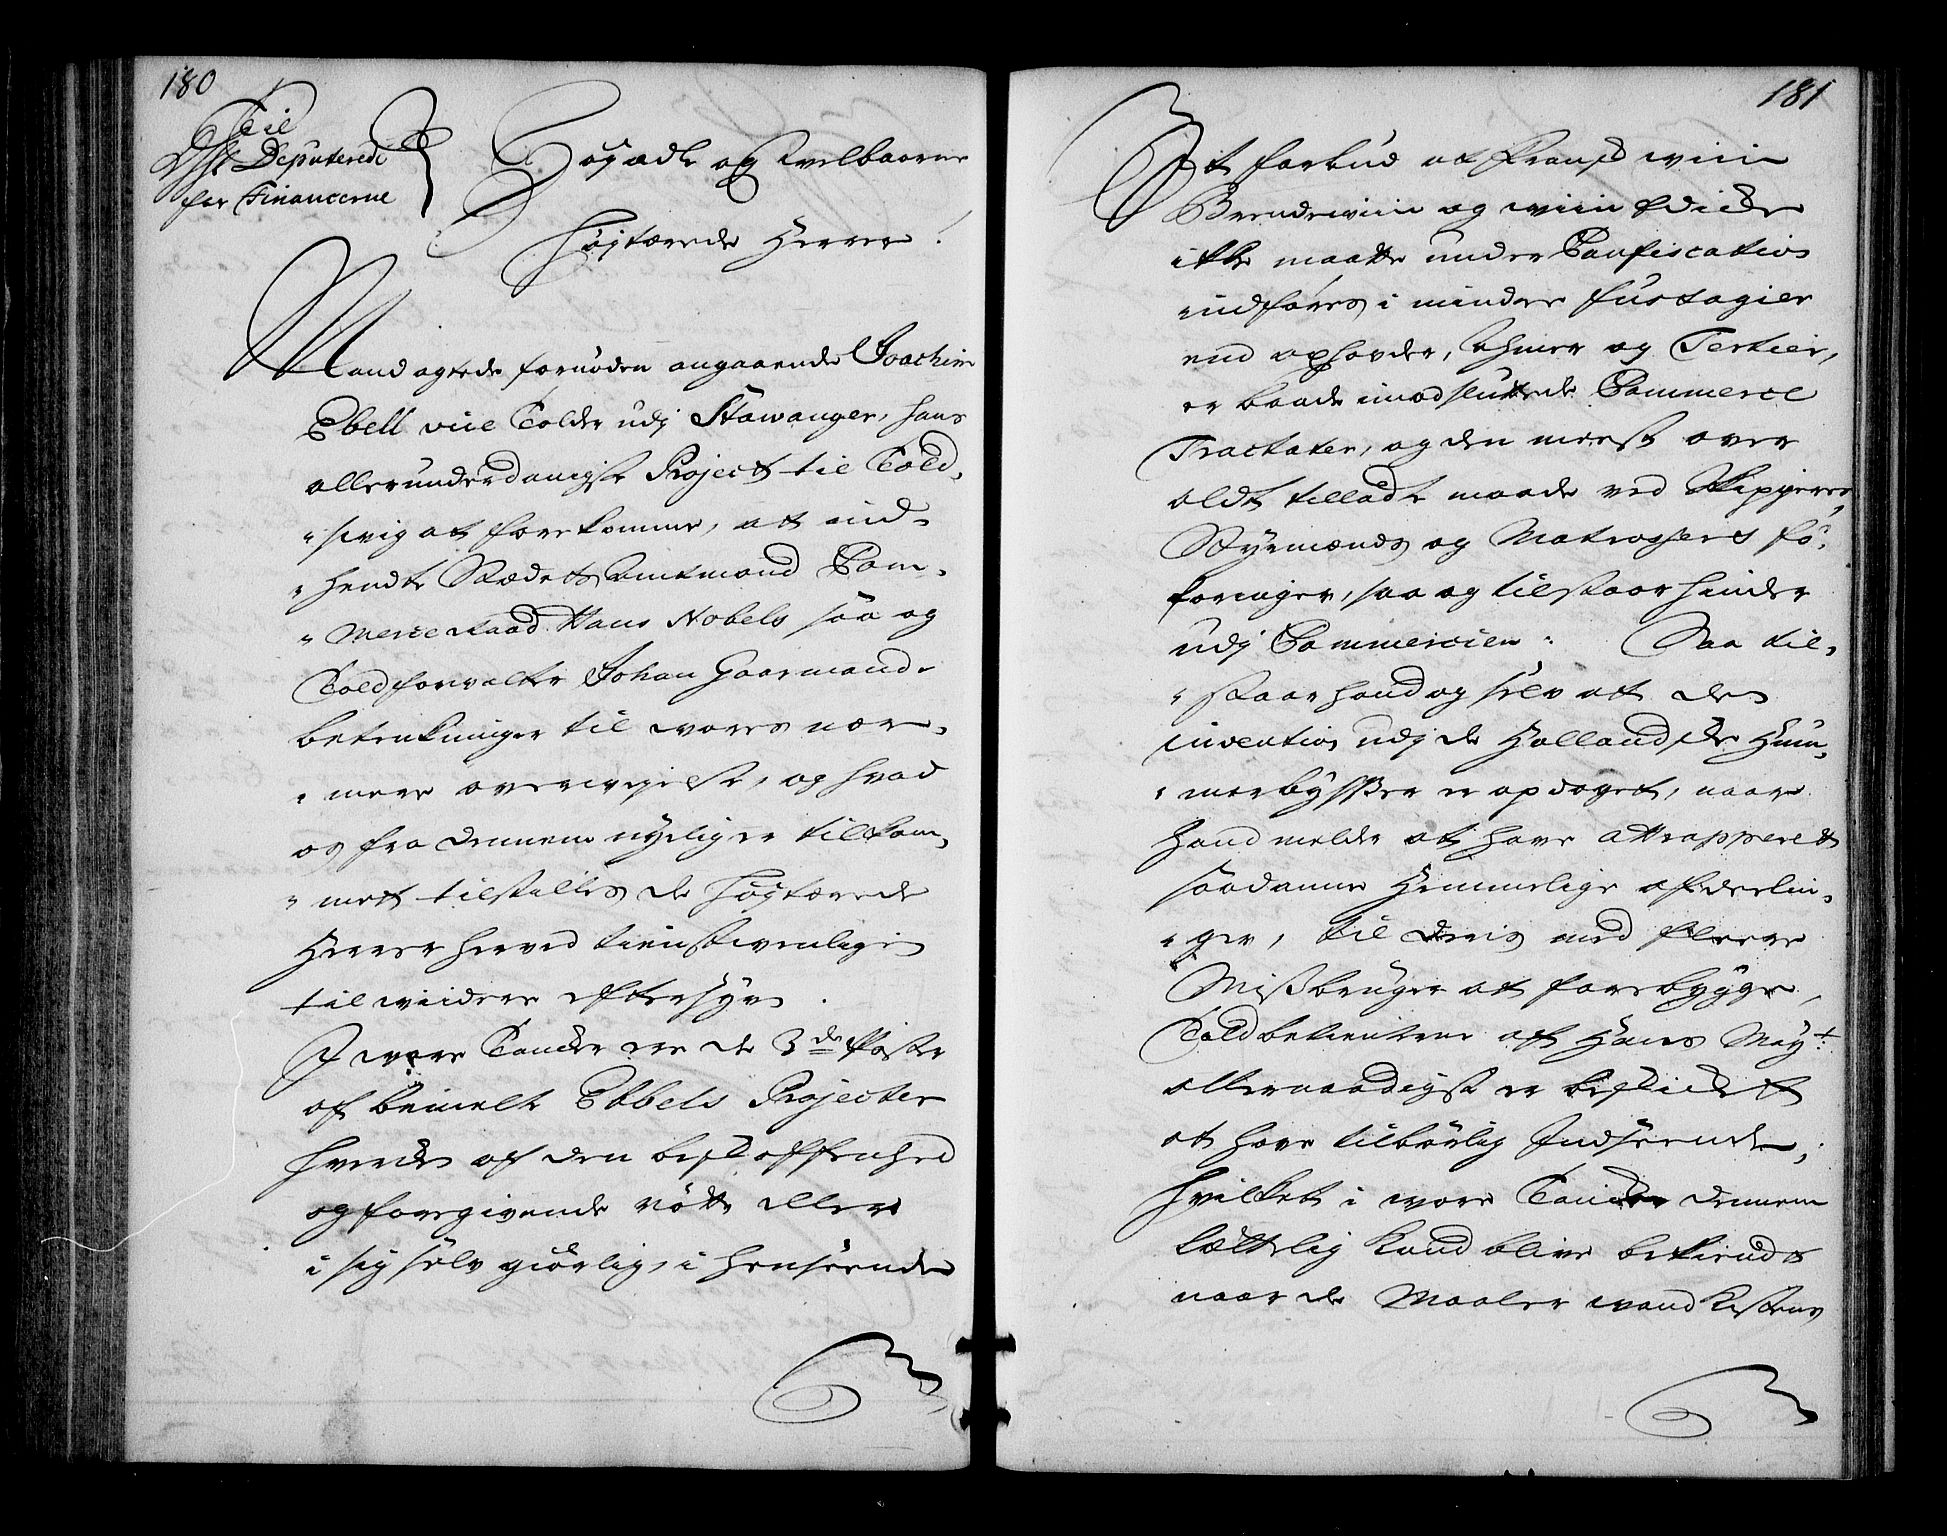 180
Til
Dhl Deputerede
for Financerne
Højædle og Welbaarne
Højtærede Herrer!
Hand agtede fornøden angaaende Joachim
Ebell viice Tolder udj Stawanger, hans
allerunderdanigste Project til Told„
„svig at forekomme, at ind„
„hendte Stædets Amtmand Com„
„merceraad Hans Nobels saa og
Toldforvalter Johan Gaarmand„
betenkninger til wores nær„
„mere overwejelse, og hvad
os fra dennem nyelig er tilkom„
„met tilstilles de Højtærede
Herrer herved tienstwenlig
til wiidere eftersyn.
I wore Tancker ere de 3de Poster
af bemelte Ebbels Projecter
hverken af den beskaffenhed
og foregivende nøtte eller
i sig selv giørlig, i henseende
181
At forbud at Fransk wiin
Brendewiin og wiin Edicke
ikke maatte under Confiscation
indføres i mindre fustagier
end oxhovder, Ahmer og Tertier,
er baade imod sluttede Commerce
Tractater, og den meest over
aldt tilladte maade ved Skippere,
Styrmænds og Matrossers fø„
foringer, saa og tilstaar hinder
udj Commercien. Saa til„
„staar hand og selv at den
invention udj de Hollandske Hum„
„merbysser er opdaget, naar
hand melder at have attrapperet
saadanne Hemmelige afdeelin„
„ger, til dvis med fleere
Missbruger at forebygge,
Toldbetienterne aft Hans Mayt:
allernaadigst er beskicket
at have tilbørlig Indseende,
hvilket i wore Tancker dennem
lættelig kand blive bekiendt
naar de Maaler wand Kistens